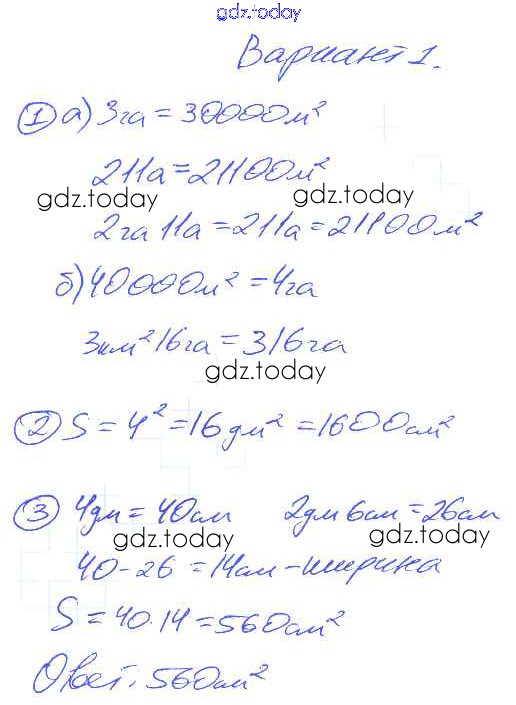 gdz.today
Вариант 1.
① а) 3га = 30000м²
211а = 21100м²
gdz.today gdz.today
2га 11а = 211а = 21100м²
б) 40000м² = 4га
3км² 16га = 316га
gdz.today
② S = 4² = 16дм² = 1600см²
③ 4дм = 40см 2дм 6см = 26см
gdz.today gdz.today
40 - 26 = 14см - ширина
S = 40·14 = 560см²
Ответ: 560см²